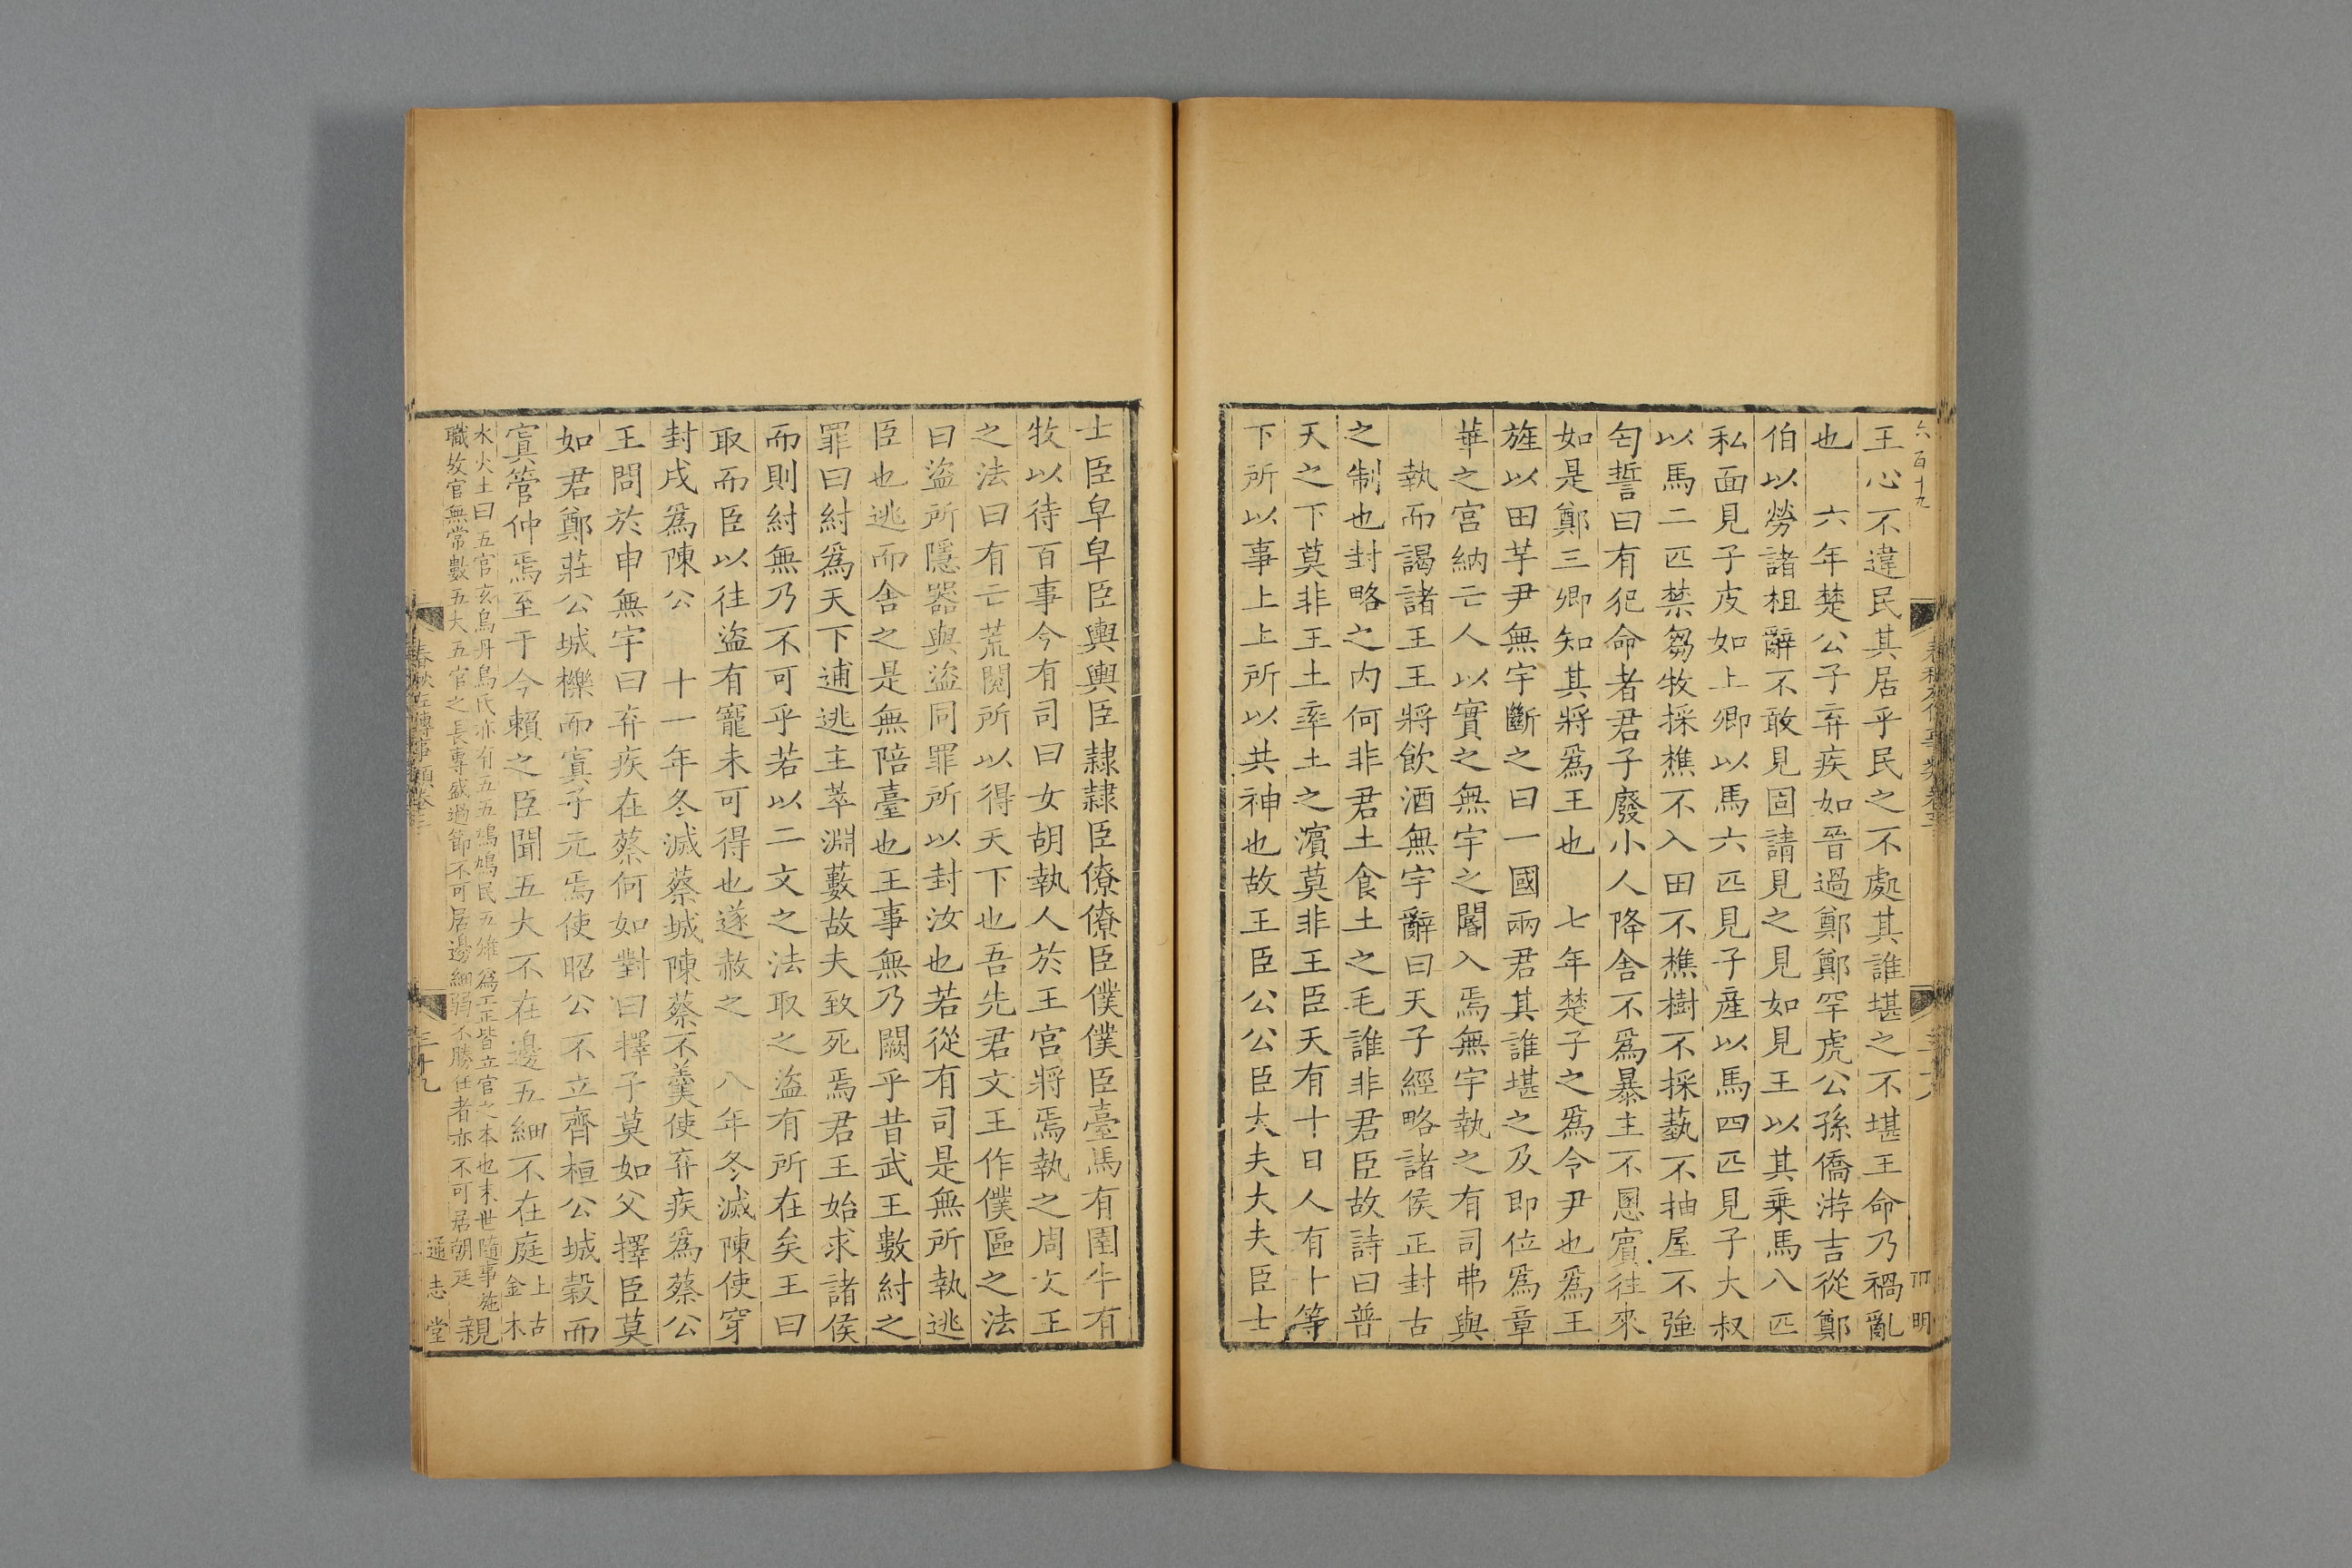 六百十九
王心不違民其居乎民之不處其誰堪之不堪王命乃禍亂
也　六年楚公子弃疾如晉過鄭鄭罕虎公孫僑游吉從鄭
伯以勞諸柤辭不敢見固請見之見如見王以其乗馬八匹
私面見子皮如上卿以馬六匹見子産以馬四匹見子大叔
以馬二匹禁芻牧採樵不入田不樵樹不採蓺不抽屋不強
匄誓曰有犯命者君子廢小人降舍不爲暴主不慁賔往來
如是鄭三卿知其將爲王也　七年楚子之爲令尹也爲王
旌以田芋尹無宇斷之曰一國兩君其誰堪之及即位爲章
華之宮納亡人以實之無宇之閽入焉無宇執之有司弗與
執而謁諸王王將飲酒無宇辭曰天子經略諸侯正封古
之制也封略之内何非君土食土之毛誰非君臣故詩曰普
天之下莫非王土率土之濱莫非王臣天有十日人有十等
下所以事上上所以共神也故王臣公公臣大夫大夫臣士
士臣皁皁臣輿輿臣隷隷臣僚僚臣僕僕臣臺馬有圉牛有
牧以待百事今有司曰女胡執人於王宮將焉執之周文王
之法曰有亡荒閱所以得天下也吾先君文王作僕區之法
曰盜所隱器與盜同罪所以封汝也若從有司是無所執逃
臣也逃而舍之是無陪臺也王事無乃闕乎昔武王數紂之
罪曰紂爲天下逋逃主萃淵藪故夫致死焉君王始求諸侯
而則紂無乃不可乎若以二文之法取之盜有所在矣王曰
取而臣以往盜有寵未可得也遂赦之　八年冬滅陳使穿
封戌爲陳公　十一年冬滅蔡城陳蔡不羹使弃疾爲蔡公
王問於申無宇曰弃疾在蔡何如對曰擇子莫如父擇臣莫
如君鄭莊公城櫟而寘子元焉使昭公不立齊桓公城穀而
寘管仲焉至于今賴之臣聞五大不在邊五細不在庭上古金木
水火土曰五官玄鳥丹鳥氏亦有五五鳩鳩民五雉爲工正皆立官之本也末世隨事施
職故官無常數五大五官之長專盛過節不可居邊細弱不勝任者亦不可居朝廷親
春秋左傳事類卷三
三十九
通志堂